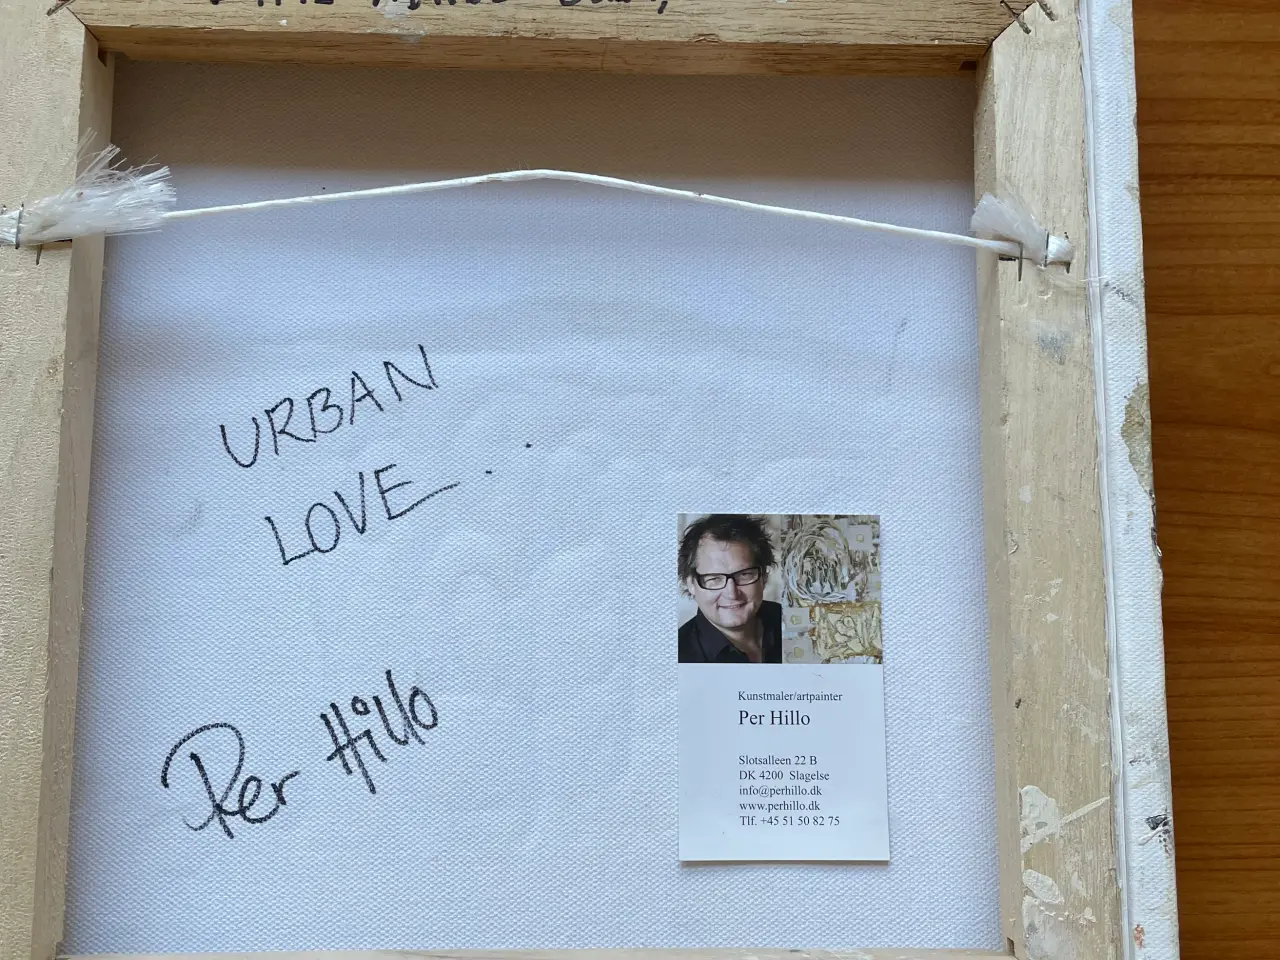 URBAN
LOVE...
Per Hillo
Kunstmaler/artpainter
Per Hillo
Slotsalleen 22 B
DK 4200 Slagelse
info@perhillo.dk
www.perhillo.dk
Tlf. +45 51 50 82 75